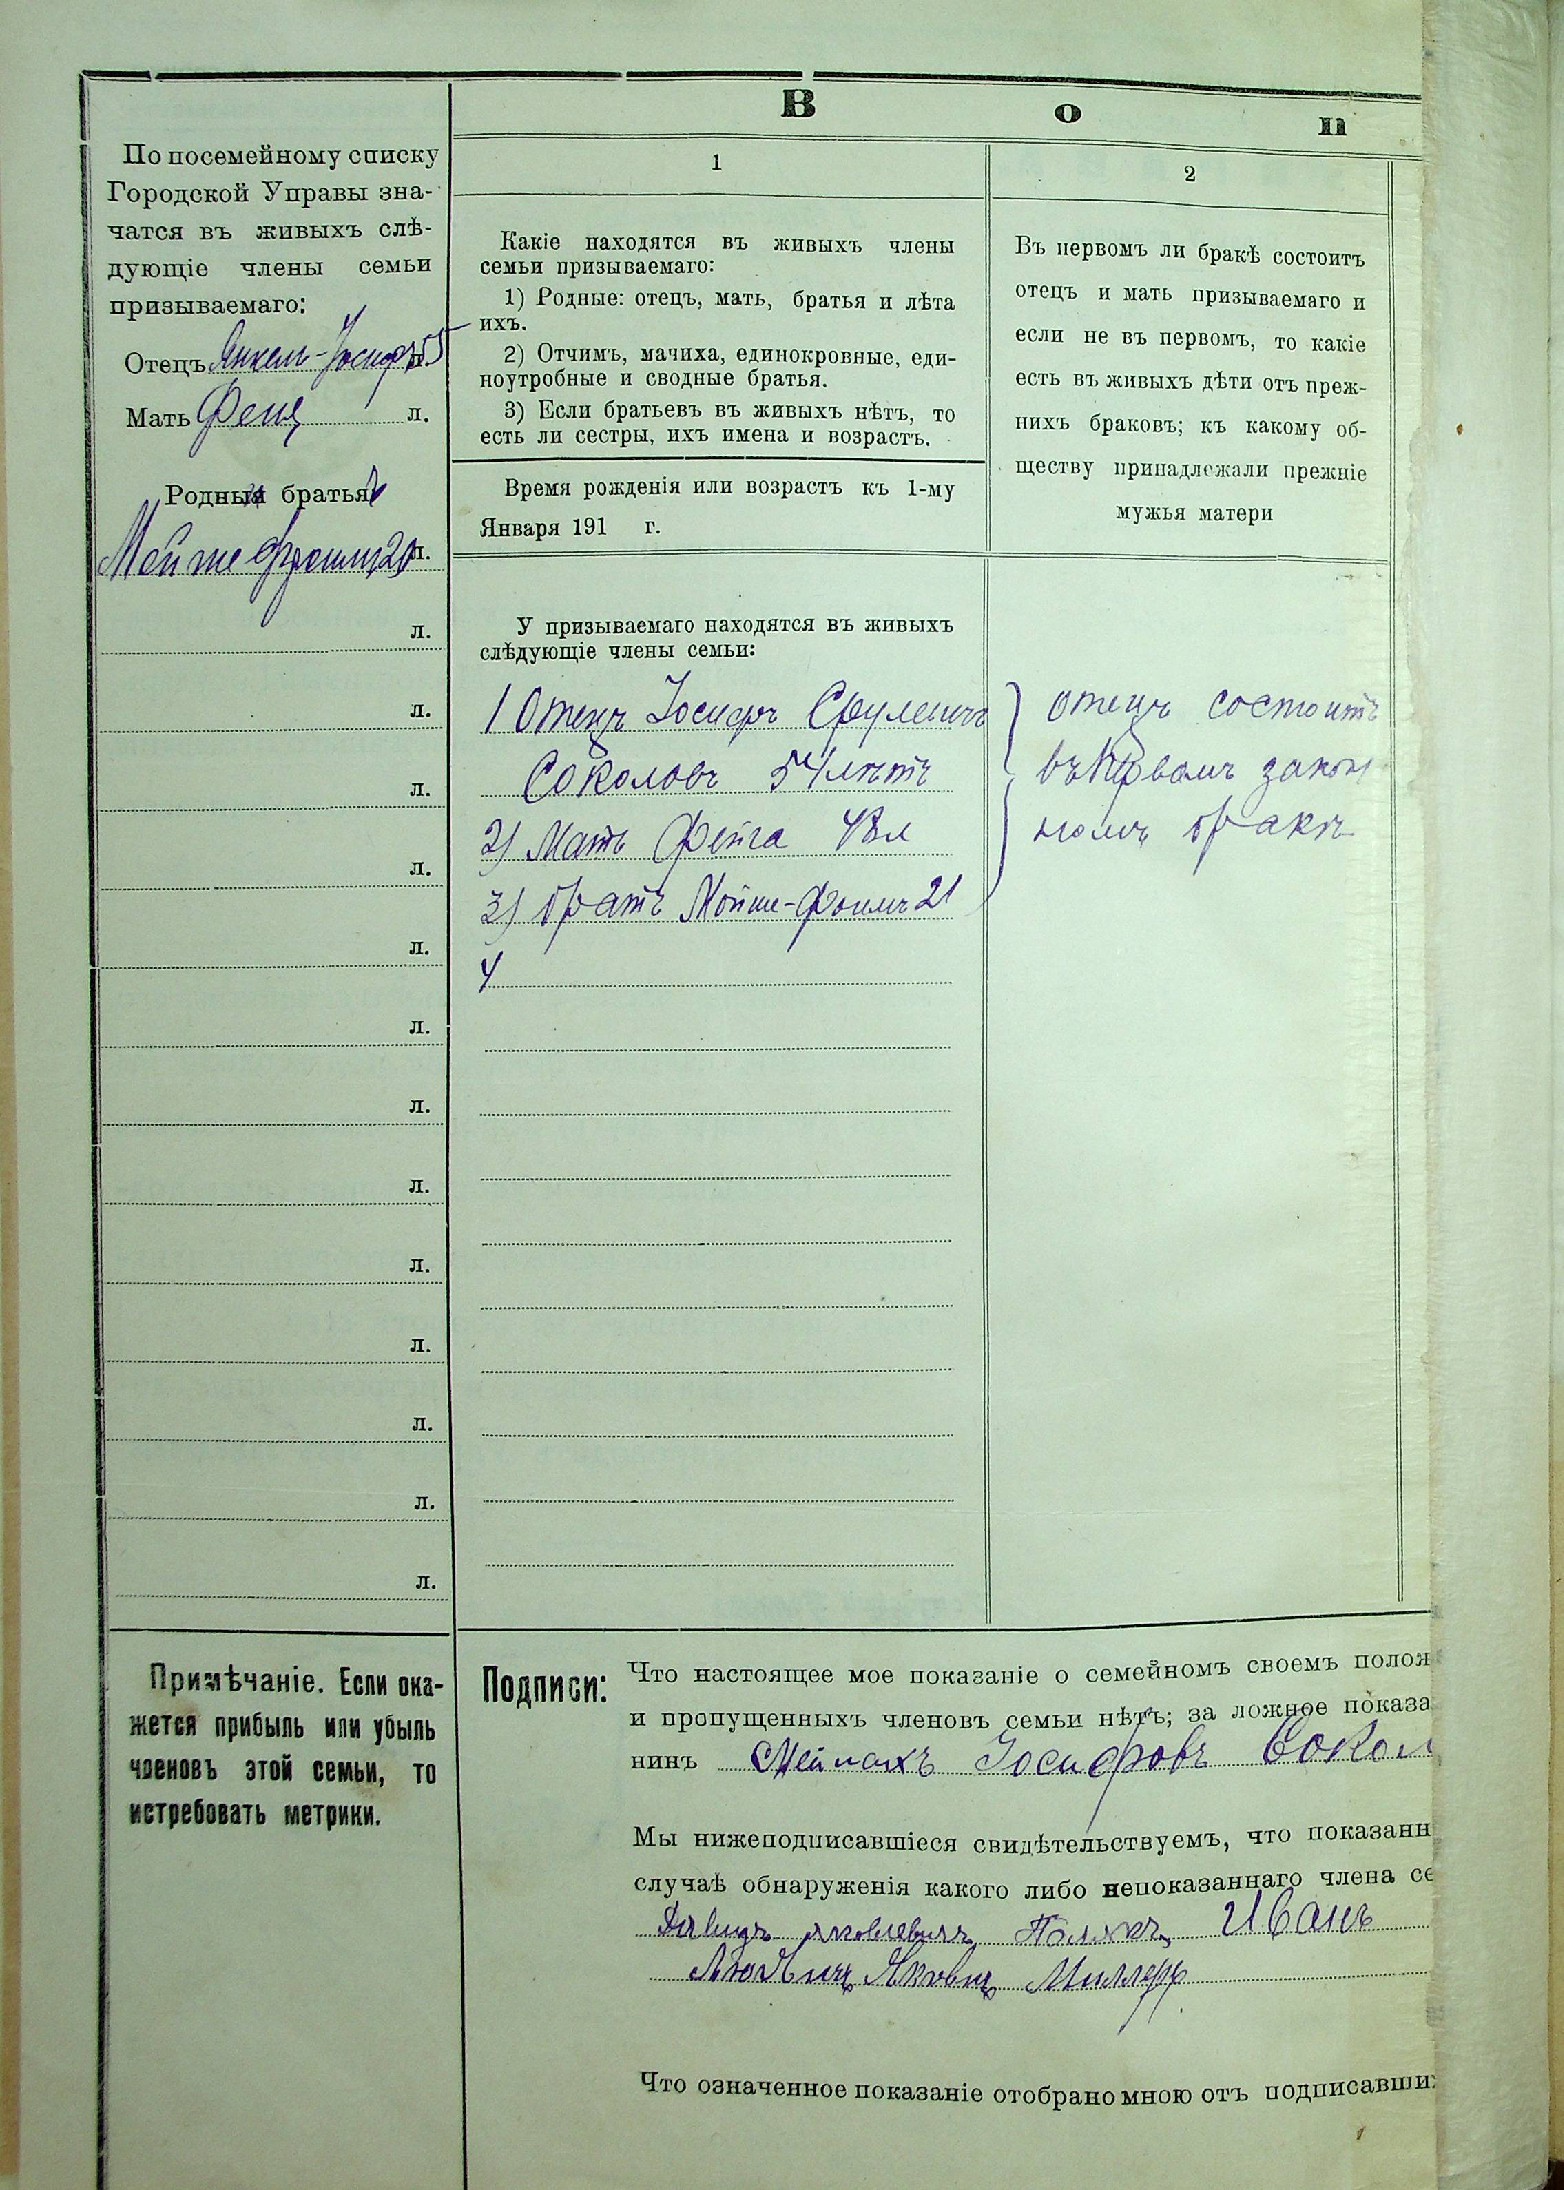 В о п
По посемейному списку
Городской Управы зна-
чатся въ живыхъ слѣ-
дующіе члены семьи
призываемаго:
Отецъ Янкель-Іосифъ 55 л.
Мать Феня л.
Родный братья
Мойше Фроимъ 20 л.
л.
л.
л.
л.
л.
л.
л.
л.
л.
л.
л.
л.
л.
1
Какіе находятся въ живыхъ члены
семьи призываемаго:
1) Родные: отецъ, мать, братья и лѣта
ихъ.
2) Отчимъ, мачиха, единокровные, еди-
ноутробные и сводные братья.
3) Если братьевъ въ живыхъ нѣтъ, то
есть ли сестры, ихъ имена и возрастъ.
Время рожденія или возрастъ къ 1-му
Января 191 г.
У призываемаго находятся въ живыхъ
слѣдующіе члены семьи:
1 Отецъ Іосифъ Срулевичъ
Соколовъ 54 лѣтъ
2) Мать Фейга 48 л
3) братъ Мойше-Фроимъ 21
4
2
Въ первомъ ли бракѣ состоитъ
отецъ и мать призываемаго и
если не въ первомъ, то какіе
есть въ живыхъ дѣти отъ преж-
нихъ браковъ; къ какому об-
ществу принадлежали прежніе
мужья матери
отецъ состоитъ
въ первомъ закон
номъ бракѣ
Примѣчаніе. Если ока-
жется прибыль или убыль
членовъ этой семьи, то
истребовать метрики.
Подписи:
Что настоящее мое показаніе о семейномъ своемъ полож
и пропущенныхъ членовъ семьи нѣтъ; за ложное показа
нинъ Мейлахъ Іосифовъ Сокол
Мы нижеподписавшіеся свидѣтельствуемъ, что показанн
случаѣ обнаруженія какого либо непоказаннаго члена се
Давидъ Яковлевичъ Полякъ Иванъ
Миллеръ
Что означенное показаніе отобрано мною отъ подписавши